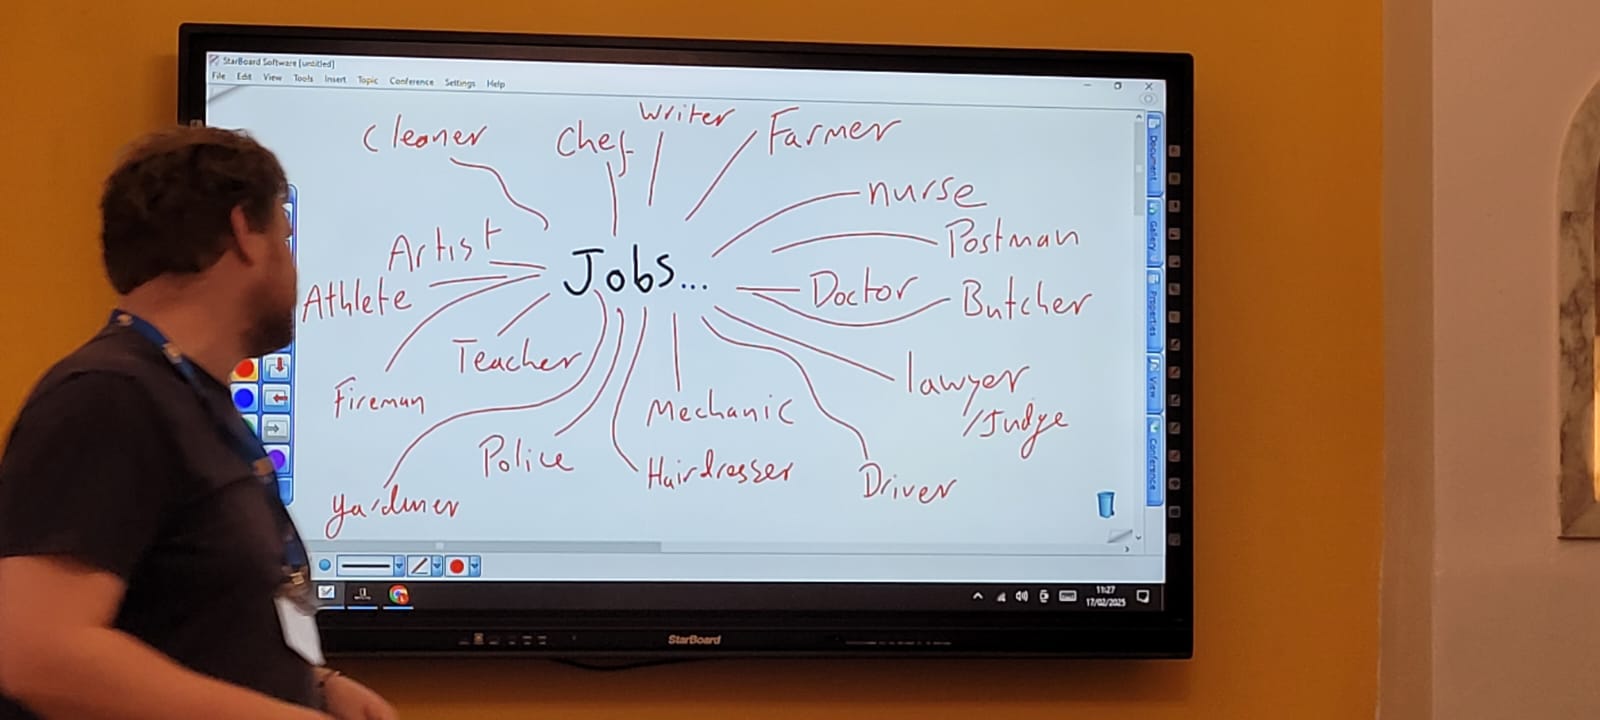 StarBoard Software [untitled]
File Edit View Tools Insert Topic Conference Settings Help
Cleaner
Chef
Writer
Farmer
nurse
Postman
Artist
Jobs...
Athlete
Doctor
Butcher
Teacher
Fireman
lawyer
/Judge
Mechanic
Police
Hairdresser
Driver
Document
Gallery
Properties
View
Conference
11:27
17/02/2025
StarBoard